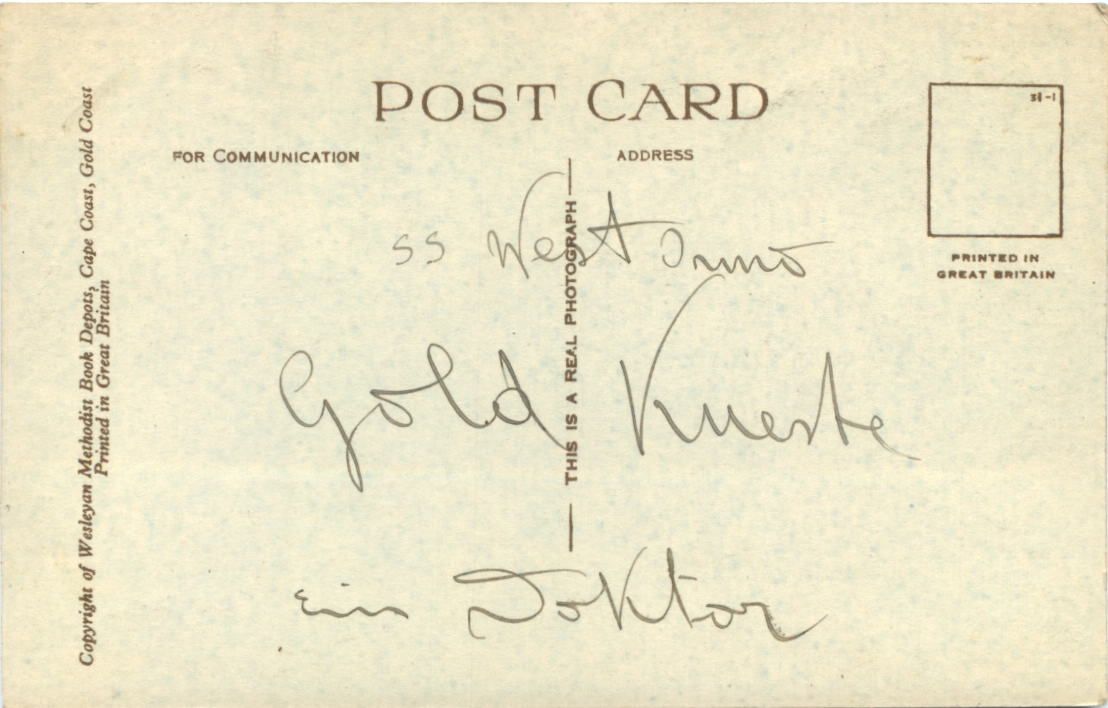 POST CARD
FOR COMMUNICATION
ADDRESS
PRINTED IN
GREAT BRITAIN
Copyright of Wesleyan Methodist Book Depots, Cape Coast, Gold Coast
Printed in Great Britain
THIS IS A REAL PHOTOGRAPH
SS West
Gold Kueste
ein Doktor